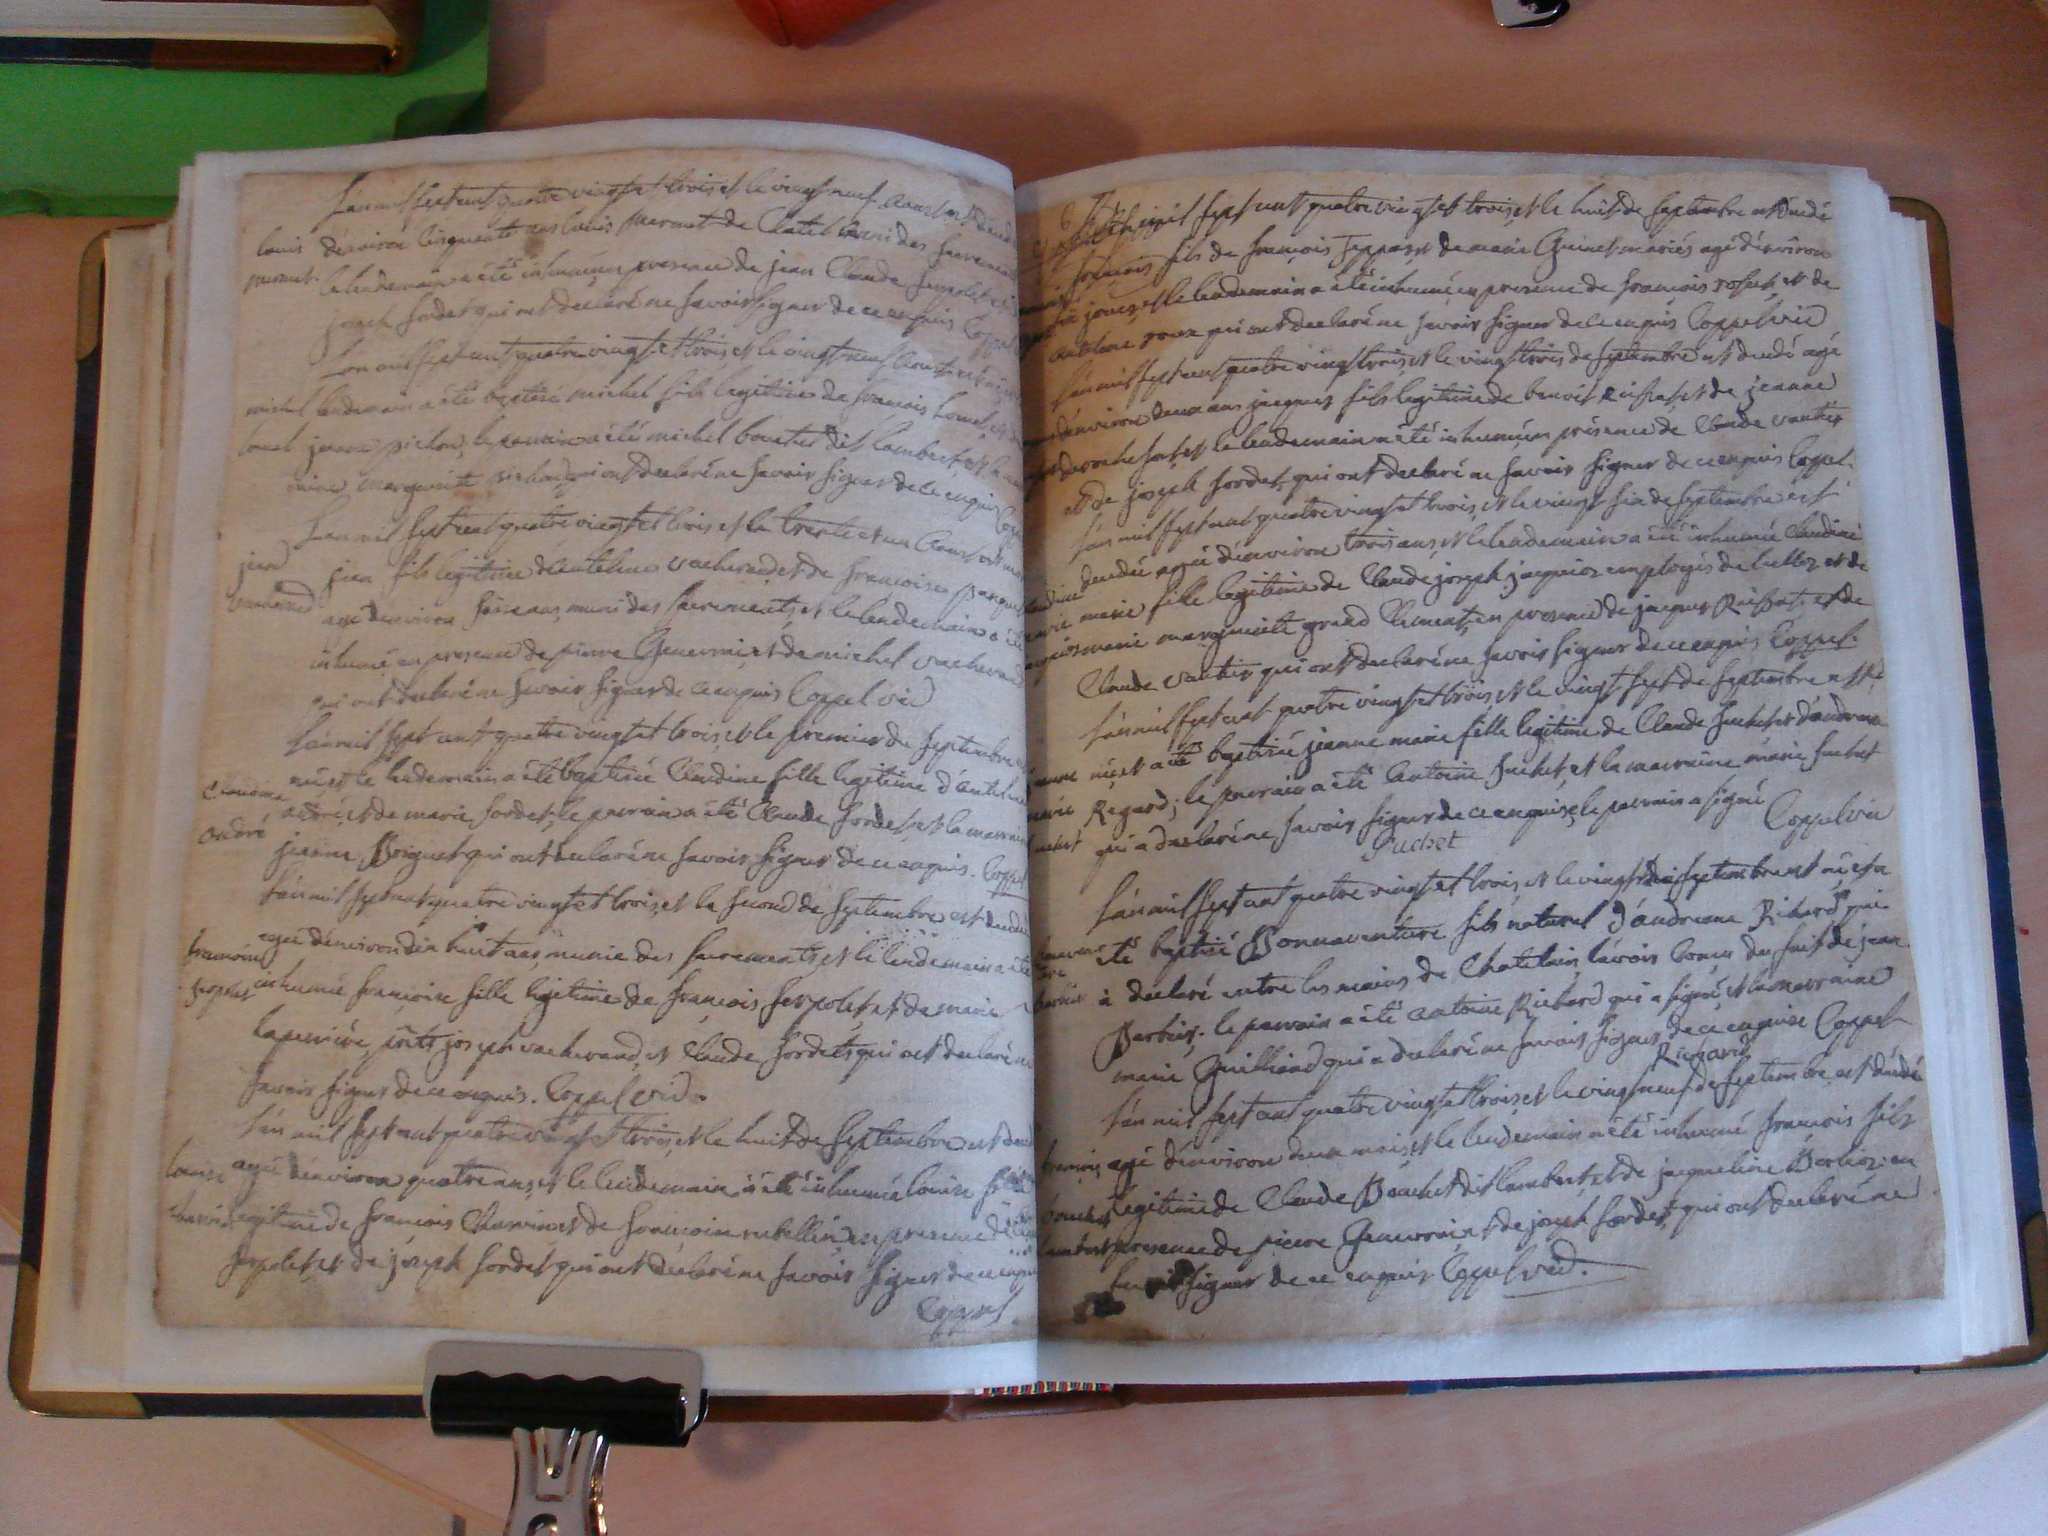 L'an mil sept cent quatre vingt et trois et le vingt neuf Aoust est décédé
louis d'environ Cinquante ans louis permet de Chatel muni des sacrements
permet. le lendemain a été inhumé en presence de jean Claude serpolet et de
joseph sordet qui ont declaré ne savoir signer de ce enquis Coppel
L'an mil sept cent quatre vingt et trois et le vingt neuf Aoust est né et le
michel lendemain a été baptisé michel fils legitime de françois
jeanne pichon, le parrain a été michel bouchet dit lambert et la mar
raine marguerite pichon qui ont declaré ne savoir signer de ce enquis Coppel
L'an mil sept cent quatre vingt et trois et le trente et un Aoust est mort
jean jean fils legitime d'anthelme vacherand et de françoise
vacherand agé d'environ seize ans, muni des sacrements, et le lendemain a été
inhumé en presence de pierre Genevrai et de michel vacherand
qui ont declaré ne savoir signer de ce enquis Coppel vic
L'an mil sept cent quatre vingt et trois, et le premier de septembre est
née et le lendemain a été baptisée Claudine fille legitime d'anthelme
Claudine andré, et de marie sordet, le parrain a été Claude sordet, et la marraine
andré jeanne Boignet qui ont declaré ne savoir signer de ce enquis. Coppel
L'an mil sept cent quatre vingt et trois, et le second de septembre est décédée
agée d'environ dix huit ans, munie des sacrements, et le lendemain a été
françoise inhumée françoise fille legitime de françois serpolet, et de marie
serpolet laperrière, pnts joseph vacherand, et Claude sordet qui ont declaré ne
savoir signer de ce enquis. Coppel vic.
L'an mil sept cent quatre vingt et trois, et le huit de septembre est décédée
louise agée d'environ quatre ans, et le lendemain a été inhumée louise fille
charvin legitime de françois Charvin et de françoise rubellin en presence de
serpolet et de joseph sordet qui ont déclaré ne savoir signer de ce enquis
Coppel.
L'an mil sept cent quatre vingt et trois, et le huit de septembre est décédé
françois fils de françois et de marie Quinet mariés agé d'environ
six jours, et le lendemain a été inhumé en presence de françois et de
antelme roux qui ont declaré ne savoir signer de ce enquis Coppel vic
L'an mil sept cent quatre vingt trois, et le vingt trois de septembre est décédé agé
d'environ deux ans jacques fils legitime de benoit et de jeanne
et le lendemain a été inhumé en présence de Claude vautier
et de joseph sordet, qui ont declaré ne savoir signer de ce enquis Coppel.
L'an mil sept cent quatre vingt et trois, et le vingt six de septembre est
décédée agée d'environ trois ans, et le lendemain a été inhumée Claudine
marie fille legitime de Claude joseph jacquier employés de et de
marie marguerite grand Clement, en presence de jacques et de
Claude vautier qui ont declaré ne savoir signer de ce enquis Coppel.
L'an mil sept cent quatre vingt et trois, et le vingt sept de septembre est
née, et a été baptisée jeanne marie fille legitime de Claude suchet et d'andreane
Regard; le parrain a été Antoine suchet, et la marraine marie suchet
qui a declaré ne savoir signer de ce enquise, le parrain a signé
Suchet Coppel vic
L'an mil sept cent quatre vingt et trois, et le vingt septembre est né et a
été baptisé Bonnaventure fils naturel d'andreane Richard qui
a declaré entre les mains de Chatelain, l'avoir conçu du fait de jean
Berlioz. le parrain a été antoine Richard qui a signé et la marraine
marie Guilliand qui a declaré ne savoir signer de ce enquise Coppel
Richard
L'an mil sept cent quatre vingt et trois, et le vingt neuf de septembre est décédé
françois agé d'environ deux mois, et le lendemain a été inhumé françois fils
bouchet legitime de Claude Bouchet dit lambert, et de jacqueline Berlioz: en
lambert presence de pierre Genevrai et de joseph sordet, qui ont declaré ne
savoir signer de ce enquis Coppel vic.